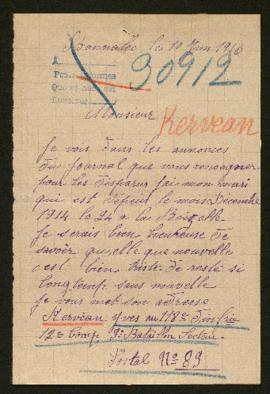 Bannalec le 10 Juin 1916
30912
Monsieur
Kervean
Je vois dans les annonces
du journal que vous renseignez
pour les disparus jai mon mari
qui est disparu le mois Décembre
1914 le 24 a la
Je serais bien heureuse de
savoir quelque nouvelle
c'est bien triste de resté si
longtemps sans nouvelle
je vous met son adresse
Kervean Yves au 118e
12e Comp 3e Bataillon Secteur
Postal No 89